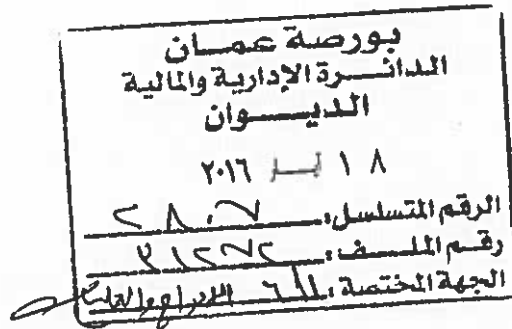 بورصة عمان
الدائرة الإدارية والمالية
الديوان
١٨ ٢٠١٦
الرقم المتسلسل: ٢٨٠٧
رقم الملف: ٣١٢٧٢
الجهة المختصة: